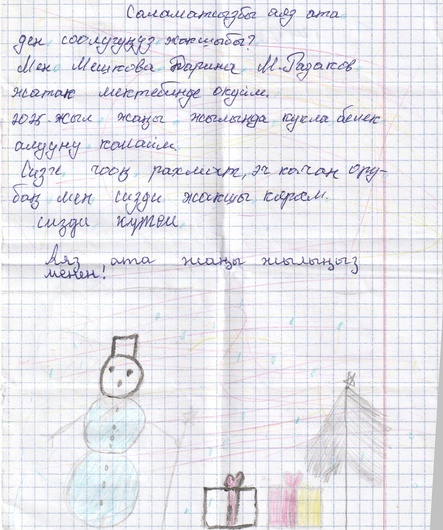 Саламатсызбы аяз ата
ден соолугуңуз жакшыбы?
Мен Мешкова Дарина М.Разаков
жатак мектебинде окуйм.
2025-жыл жаңы жылында кукла белек
алууну каалайм.
Сизге чоң рахмат, эч качан ору-
баң мен сизди жакшы көрөм.
сизди күтөм
Аяз ата жаңы жылыңыз
менен!